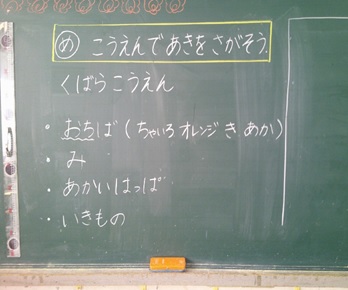 め こうえんであきをさがそう.
くばらこうえん
・おちば(ちゃいろ オレンジ き あか)
・み
・あかいはっぱ
・いきもの